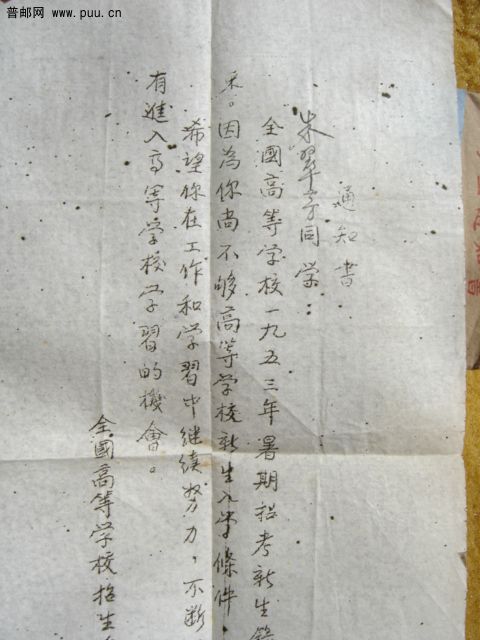 普邮网 www.puu.cn
通知書
朱翠芳同学：
全國高等学校一九五三年暑期招考新生
釆。因為你尚不够高等学校新生入学條件，
希望你在工作和学習中継续努力，不断
有進入高等学校学習的機會。
全國高等学校招生